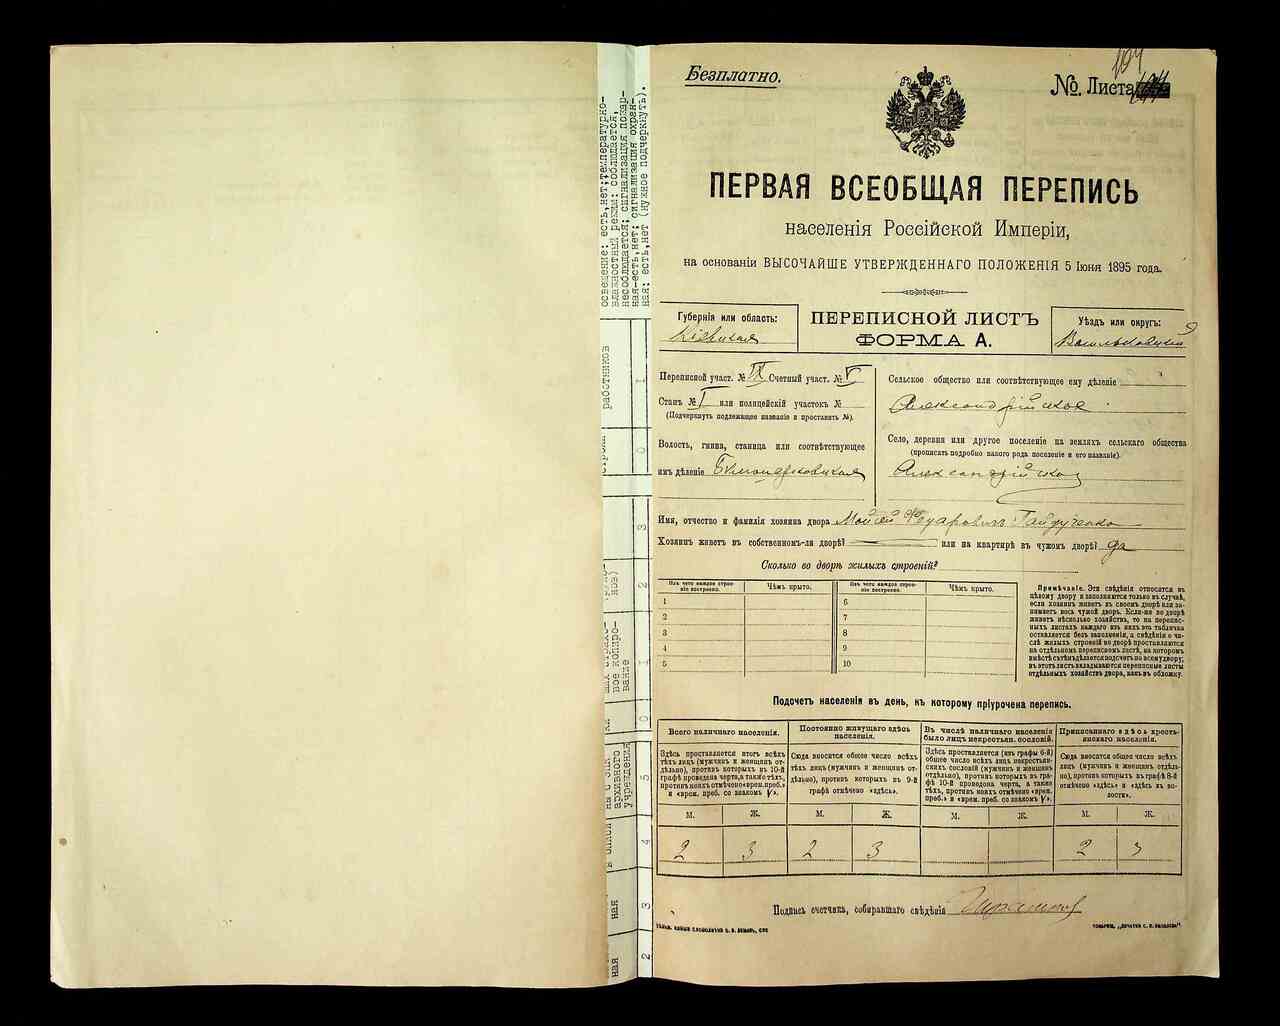 Безплатно.
№ Листа 104
ПЕРВАЯ ВСЕОБЩАЯ ПЕРЕПИСЬ
населенія Россійской Имперіи,
на основаніи ВЫСОЧАЙШЕ УТВЕРЖДЕННАГО ПОЛОЖЕНІЯ 5 Іюня 1895 года.
Губернія или область:
Кіевская
ПЕРЕПИСНОЙ ЛИСТЪ
ФОРМА А.
Уѣздъ или округъ:
Васильковскій
Переписной участ. № IX Счетный участ. № V
Станъ № I или полицейскій участокъ №
(Подчеркнуть подлежащее названіе и проставить №).
Волость, гмина, станица или соотвѣтствующее
имъ дѣленіе
Сельское общество или соотвѣтствующее ему дѣленіе
Александрійское
Село, деревня или другое поселеніе на земляхъ сельскаго общества
(прописать подробно какого рода поселеніе и его названіе).
Имя, отчество и фамилія хозяина двора Мойсей Федаровичъ Гайдученко
Хозяинъ живетъ въ собственномъ-ли дворѣ? или на квартирѣ въ чужомъ дворѣ? да
Сколько во дворѣ жилыхъ строеній?
Изъ чего каждое строеніе построено.
Чѣмъ крыто.
Изъ чего каждое строеніе построено.
Чѣмъ крыто.
1
2
3
4
5
6
7
8
9
10
Примѣчаніе. Эти свѣдѣнія относятся къ
цѣлому двору и заполняются только въ случаѣ,
если хозяинъ живетъ въ своемъ дворѣ или за-
нимаетъ весь чужой дворъ. Если-же во дворѣ
живетъ нѣсколько хозяйствъ, то на перепис-
ныхъ листахъ каждаго изъ нихъ эта табличка
оставляется безъ заполненія, а свѣдѣнія о чи-
слѣ жилыхъ строеній во дворѣ проставляются
на отдѣльномъ переписномъ листѣ, на которомъ
вмѣстѣ съ тѣмъ дѣлается подсчетъ по всему двору;
въ этотъ листъ вкладываются переписные листы
отдѣльныхъ хозяйствъ двора, какъ въ обложку.
Подсчетъ населенія въ день, къ которому пріурочена перепись.
Всего наличнаго населенія.
Здѣсь проставляется итогъ всѣхъ
тѣхъ лицъ (мужчинъ и женщинъ от-
дѣльно), противъ которыхъ въ 10-й
графѣ проведена черта, а также тѣхъ,
противъ коихъ отмѣчено «врем. преб.»
и «врем. преб. со знакомъ V».
Постоянно живущаго здѣсь
населенія.
Сюда вносится общее число всѣхъ
тѣхъ лицъ (мужчинъ и женщинъ от-
дѣльно), противъ которыхъ въ 9-й
графѣ отмѣчено «здѣсь».
Въ числѣ наличнаго населенія
было лицъ некрестьян. сословій.
Здѣсь проставляется (изъ графы 6-й)
общее число всѣхъ лицъ некрестьян-
скихъ сословій (мужчинъ и женщинъ
отдѣльно), противъ которыхъ въ гра-
фѣ 10-й проведена черта, а также
тѣхъ, противъ коихъ отмѣчено «врем.
преб.» и «врем. преб. со знакомъ V».
Приписаннаго здѣсь кресть-
янскаго населенія.
Сюда вносится общее число всѣхъ
лицъ (мужчинъ и женщинъ отдѣль-
но), противъ которыхъ въ графѣ 8-й
отмѣчено «здѣсь» и «здѣсь въ во-
лости».
М. Ж. М. Ж. М. Ж. М. Ж.
2 3 2 3 2 3
Подпись счетчика, собиравшаго свѣдѣнія
освещение: есть, нет; температурно-
влажностный режим: соблюдается,
несоблюдается; сигнализация пожар-
ная-есть, нет; сигнализация охран-
ная: есть, нет (нужное подчеркнуть).
работников
1
0
3
2
1
0
5
4
3
2
архивного
учреждения